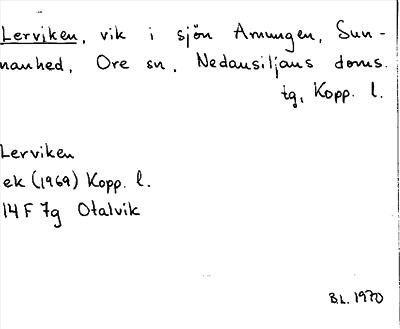 Lerviken, vik i sjön Amungen, Sun-
nanhed, Ore sn, Nedansiljans doms.
tg, Kopp. l.
Lerviken
ek (1969) Kopp. l.
14 F 7g Otalvik
B.L. 1970